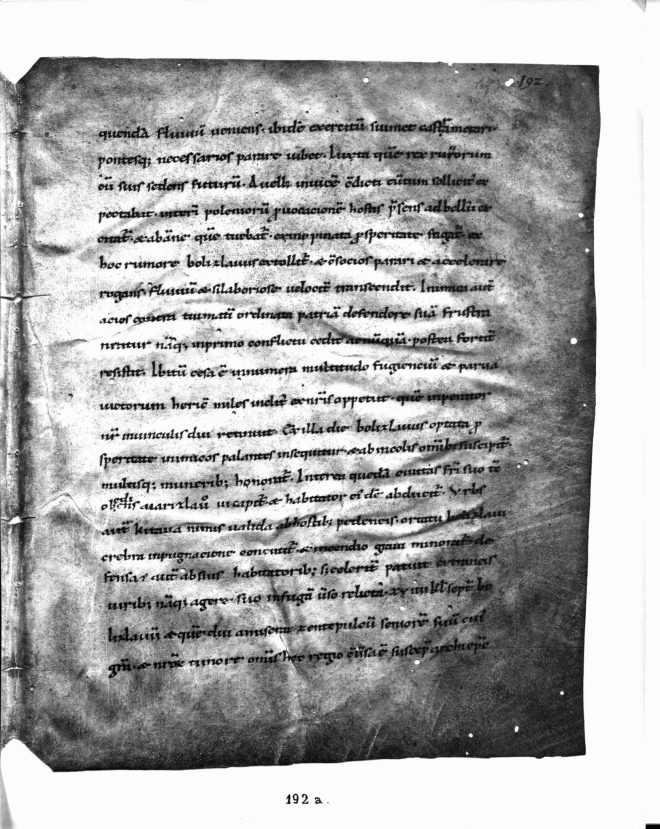 quendā fluuiū ueniens. ibidē exercitū suimet castrametari.
pontesq; necessarios parare iubet. Iuxta quē rex ruszorum
cū suis sedens futurū. duelli inuicē cōdicti euētum sollicitꝰ ex
pectabat. interī poleniorū ꝓuocacione hostis p̄sens ad bellū ex
citat̄. & ab āne quē tuebat̄. ex inopinata ꝓsperitate fugat̄. ex
hoc rumore bolizlauus extollit̄. & cōsocios parari & accelerare
rogans. fluuiū & si laboriose velocit̄ transcendit. Inimica aut̄
acies contra turmatī ordinata patriā defendere suā frustra
nititur nāq; in primo conflictu cedit ac nūquā postea fortit̄
resistit. Ibi tū cesa ē innumera multitudo fugienciū & parua
uictorum heric̄ miles inclit̄ ex nr̄is oppetiit. quē inperator
nr̄ in uinculis diu retinuit. Ex illa die bolizlauus optata ꝓ
speritate inimicos palantes insequitur. & ab incolis omib; suscipit̄.
multisq; muneribꝫ honorat̄. Interea quedā ciuitas fr̄i suo tc̄
obediens a uarizlauo ui capit̄. & habitator ei' dē abducit̄. Vrbs
aut̄ kitaua nimis valida ab hostib; pedeneis. ortatu bolizlaui
crebra inpugnacione concutit̄. & incendio graui minorat̄. de
fensa ē aut̄ ab suis habitatorib; s; celerit̄ patuit extraneis
uirib; nāq; a rege suo in fugā ūso relicta. xviiii kl̄ septb̄ bo
lizlauū & quē diu amiserat zentepulcū seniorē suū cui'
grā. & nr̄oꝝ timore om̄is hec regio ōūsa ē suscep̄ archiep̄c